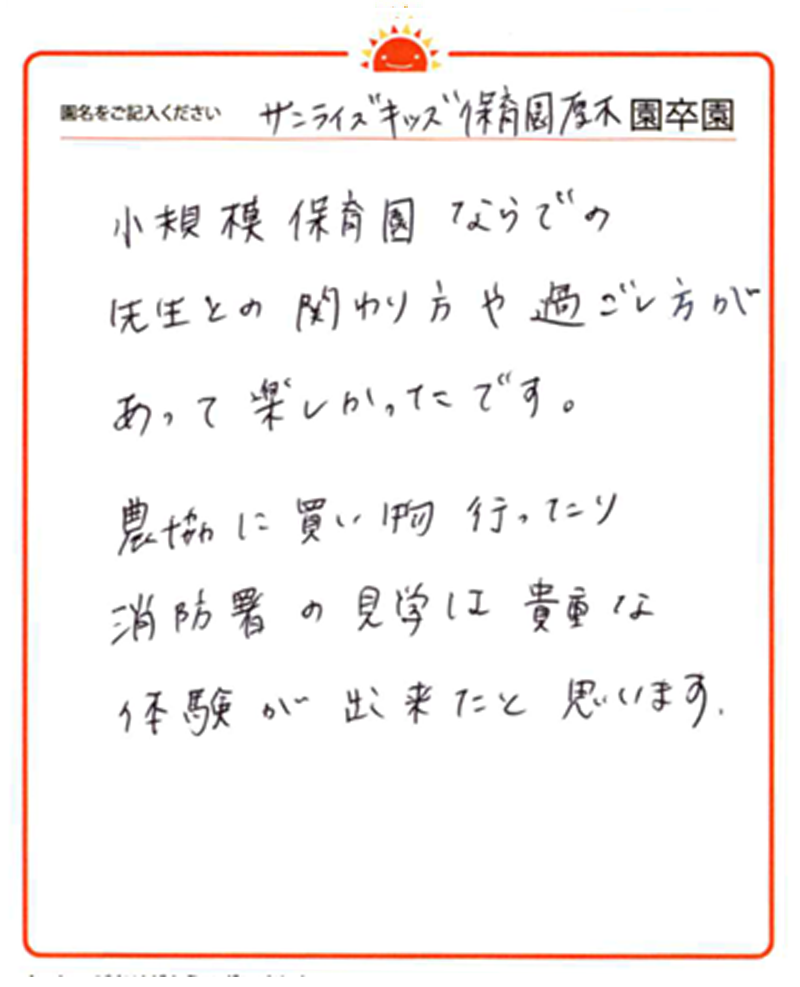 園名をご記入ください サンライズキッズ保育園厚木園卒園
小規模保育園ならでの
先生との関わり方や過ごし方が
あって楽しかったです。
農協に買い物行ったり
消防署の見学は貴重な
体験が出来たと思います.